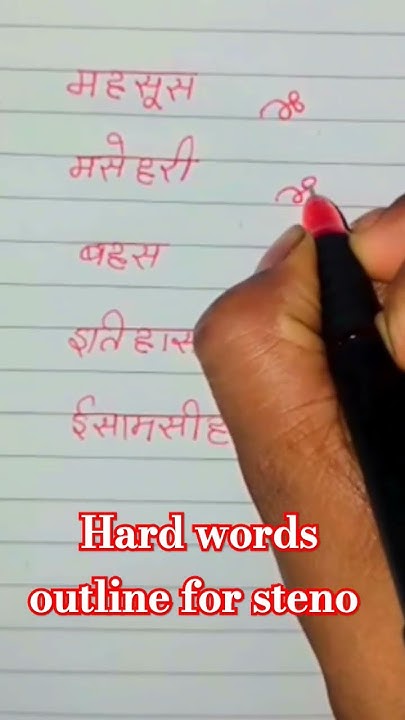 महसूस
मसेहरी
बहस
इतिहास
ईसामसीह
Hard words
outline for steno